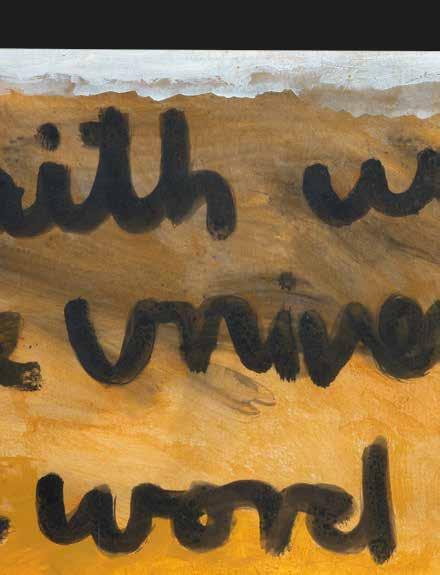 aith w
e unive
word